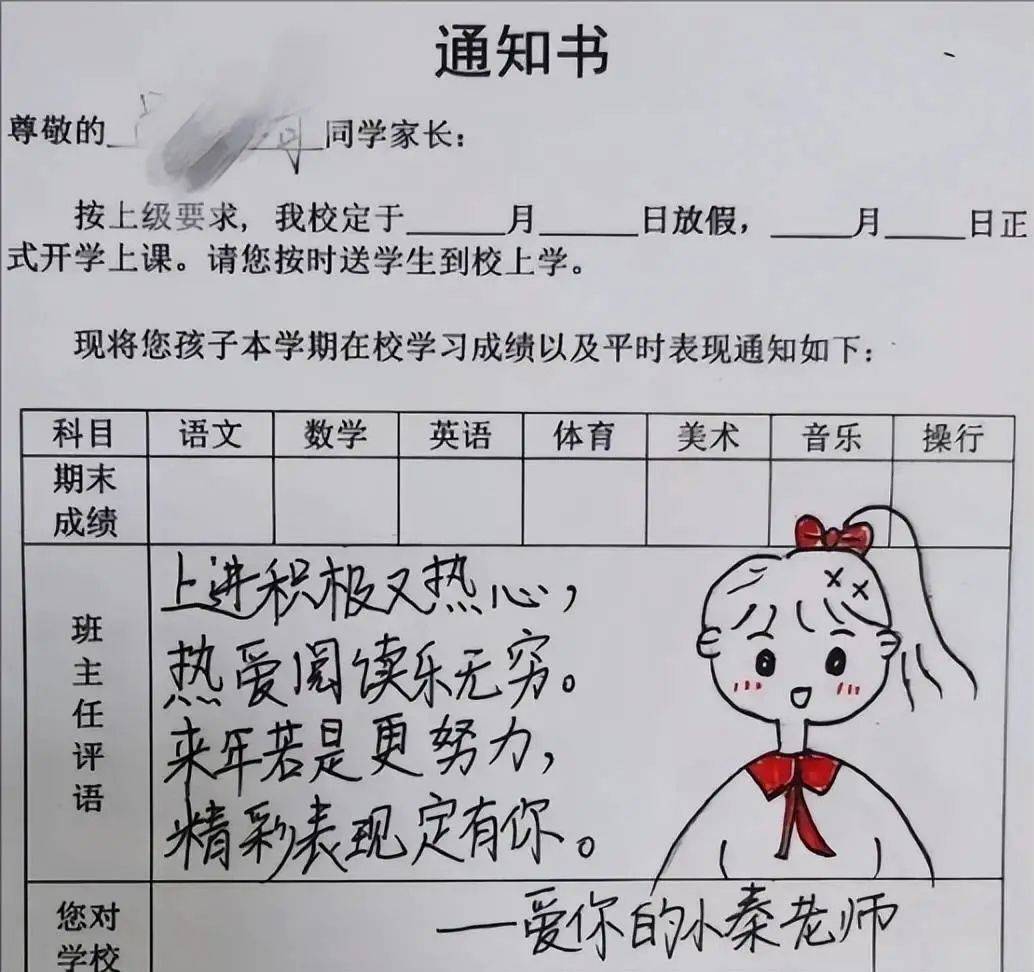 通知书
尊敬的______同学家长：
按上级要求，我校定于______月______日放假，_____月_____日正
式开学上课。请您按时送学生到校上学。
现将您孩子本学期在校学习成绩以及平时表现通知如下：
科目 语文 数学 英语 体育 美术 音乐 操行
期末
成绩
班主任评语
上进积极又热心，
热爱阅读乐无穷。
来年若是更努力，
精彩表现定有你。
——爱你的小秦老师
您对
学校